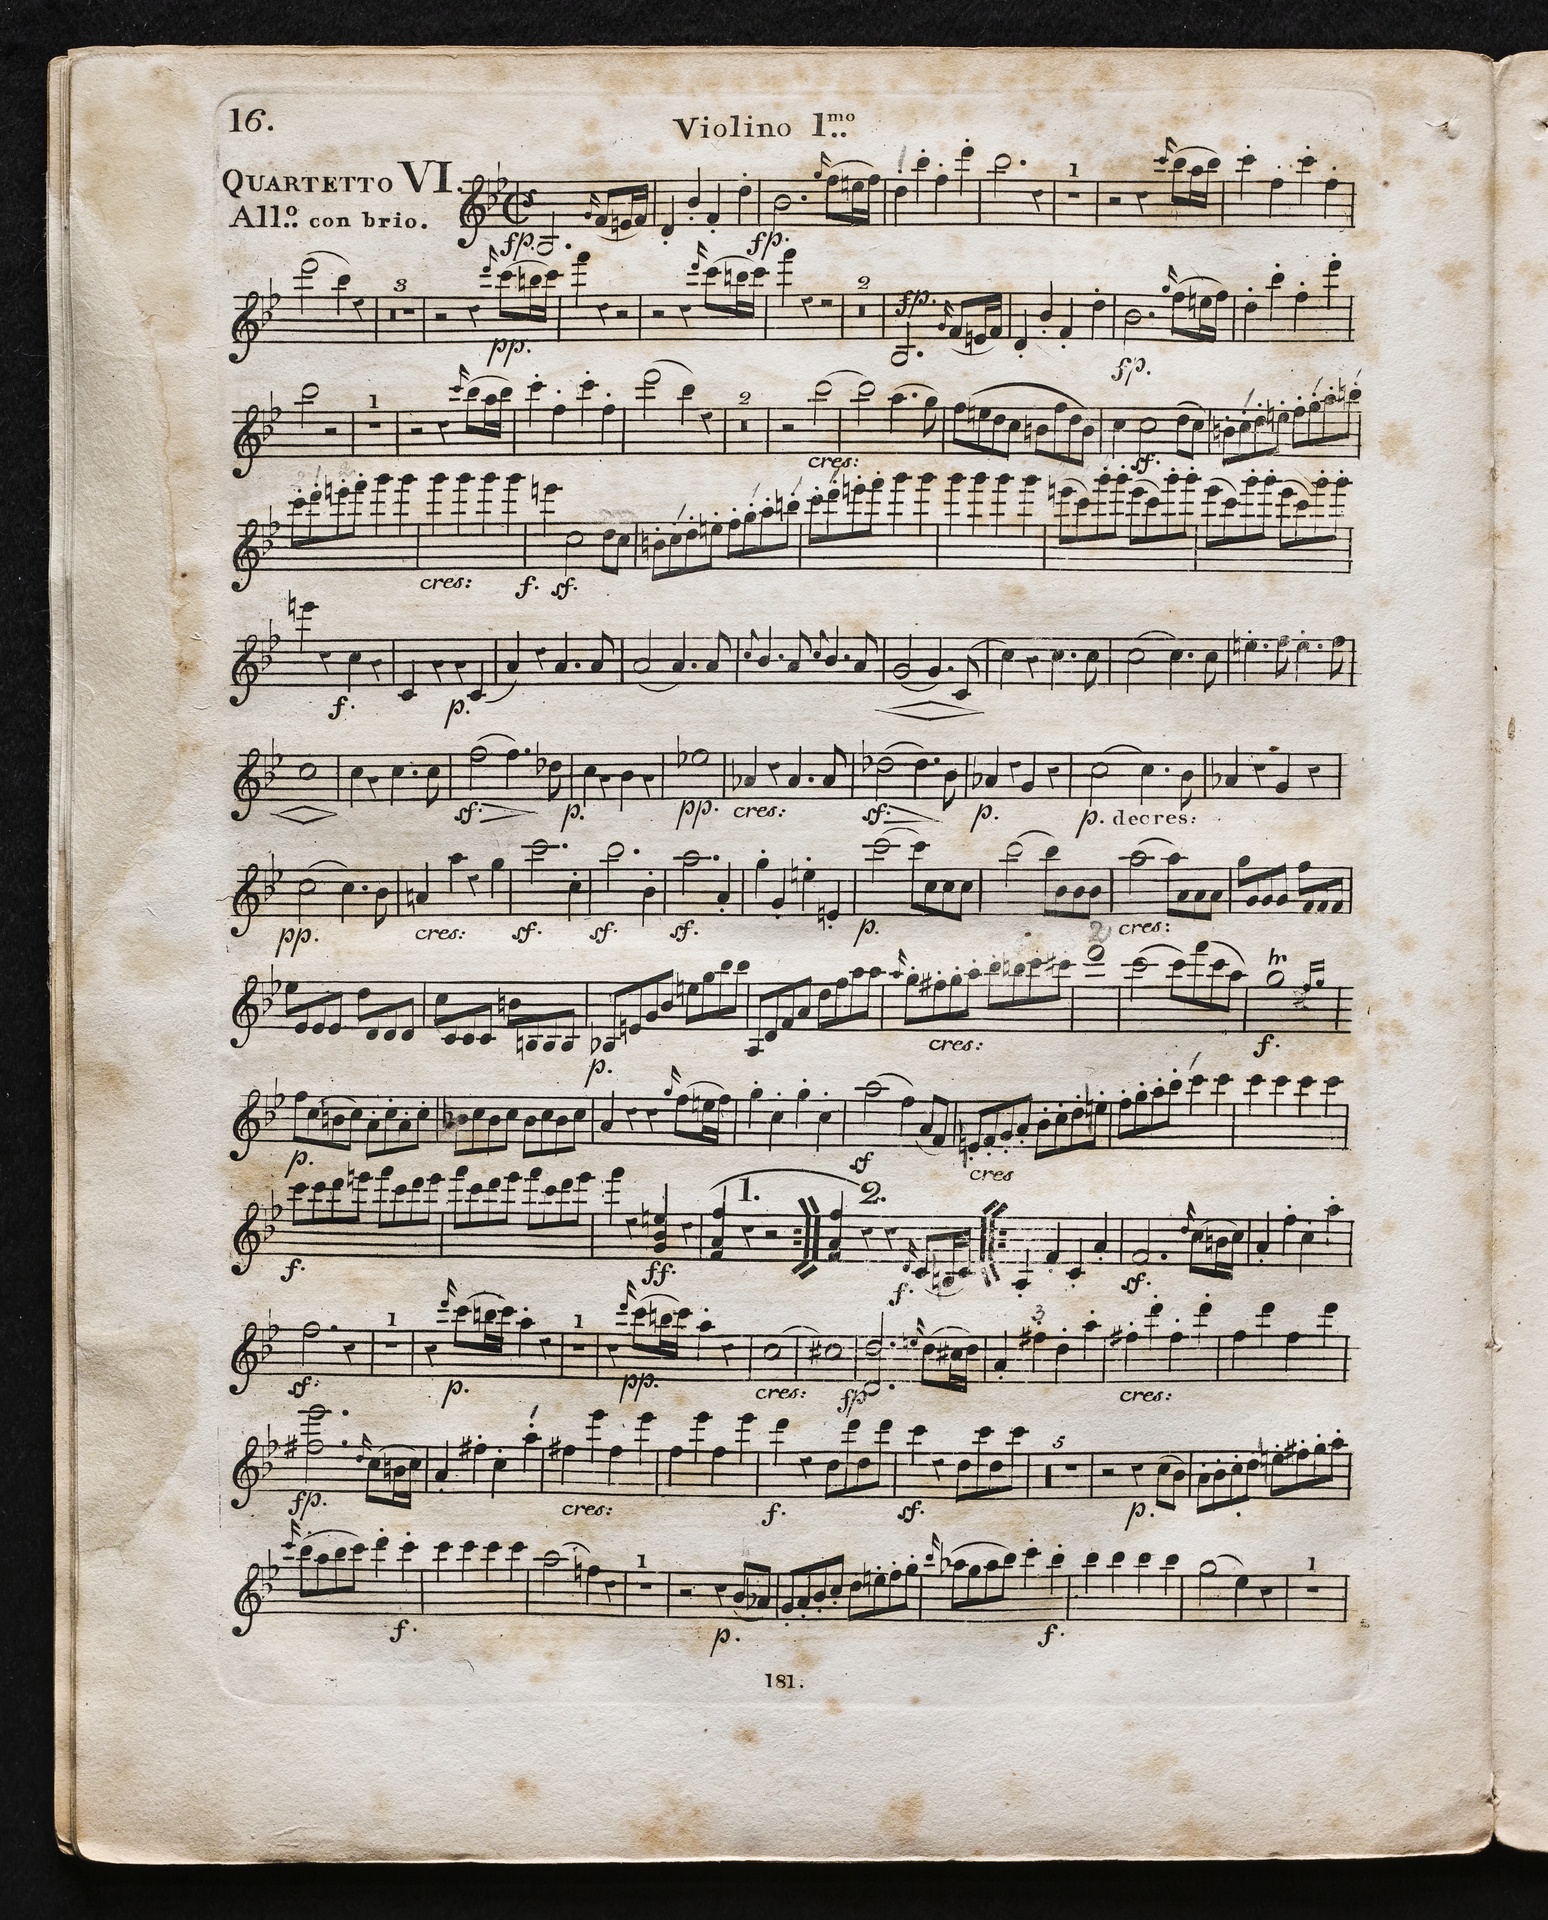 16.
Violino 1mo
QUARTETTO VI.
All.o con brio.
fp. fp. 1
3 pp. 2 fp. fp.
1 2 cres: sf.
cres: f. sf.
f. p.
sf. p. pp. cres: sf. p. p. decres:
pp. cres: sf. sf. sf. p. cres:
p. cres: tr f.
p. sf cres
f. ff. 1. 2. f. sf.
sf: 1 p. 1 pp. cres: fp 3 cres:
fp. cres: f. sf. 5 p.
f. 1 p. f. 1
181.